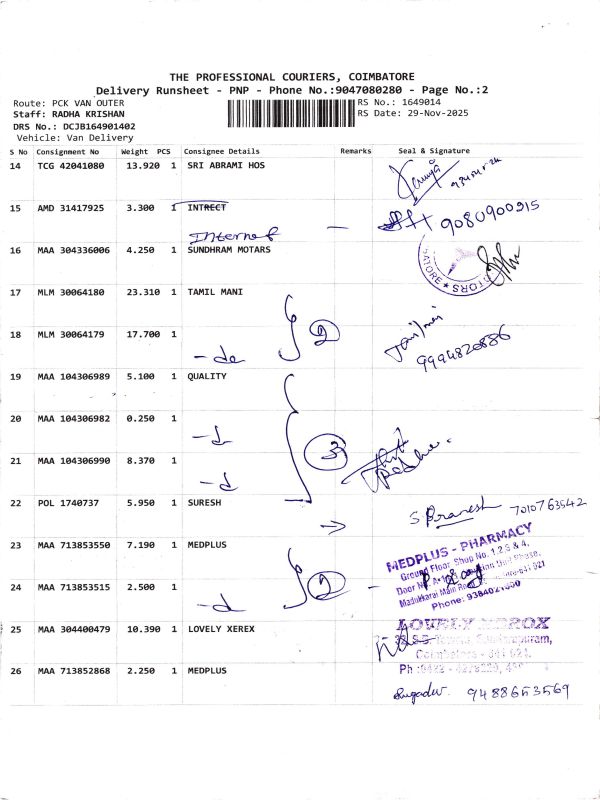 THE PROFESSIONAL COURIERS, COIMBATORE
Delivery Runsheet - PNP - Phone No.:9047080280 - Page No.:2
Route: PCK VAN OUTER RS No.: 1649014
Staff: RADHA KRISHAN RS Date: 29-Nov-2025
DRS No.: DCJB164901402
Vehicle: Van Delivery
S No Consignment No Weight PCS Consignee Details Remarks Seal & Signature
14 TCG 42041080 13.920 1 SRI ABRAMI HOS
15 AMD 31417925 3.300 1 INTRECT
Internet 9080900915
16 MAA 304336006 4.250 1 SUNDHRAM MOTARS
17 MLM 30064180 23.310 1 TAMIL MANI
18 MLM 30064179 17.700 1
- do 2 9994820886
19 MAA 104306989 5.100 1 QUALITY
20 MAA 104306982 0.250 1
21 MAA 104306990 8.370 1
3
22 POL 1740737 5.950 1 SURESH
S Pranesh 7010763542
23 MAA 713853550 7.190 1 MEDPLUS
MEDPLUS - PHARMACY
Ground Floor, Shop No. 1,2,3 & 4,
24 MAA 713853515 2.500 1
2
Madukkarai Main
Phone:
25 MAA 304400479 10.390 1 LOVELY XEREX
LOVELY XEROX
Coimbatore - 641 021.
26 MAA 713852868 2.250 1 MEDPLUS
9488653569